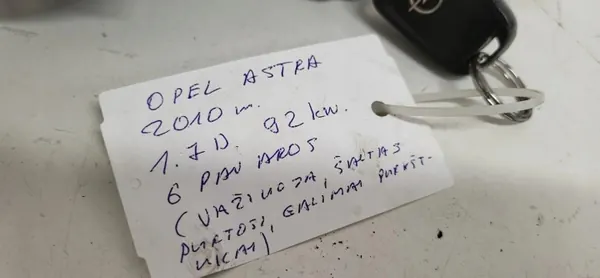 OPEL ASTRA
2010 m.
1.7D. 92 kW.
6 PAVAROS
(VAŽIUOJA, ŠALTAS
PURTOSI, GALIMAI PURKŠT-
UKAI),